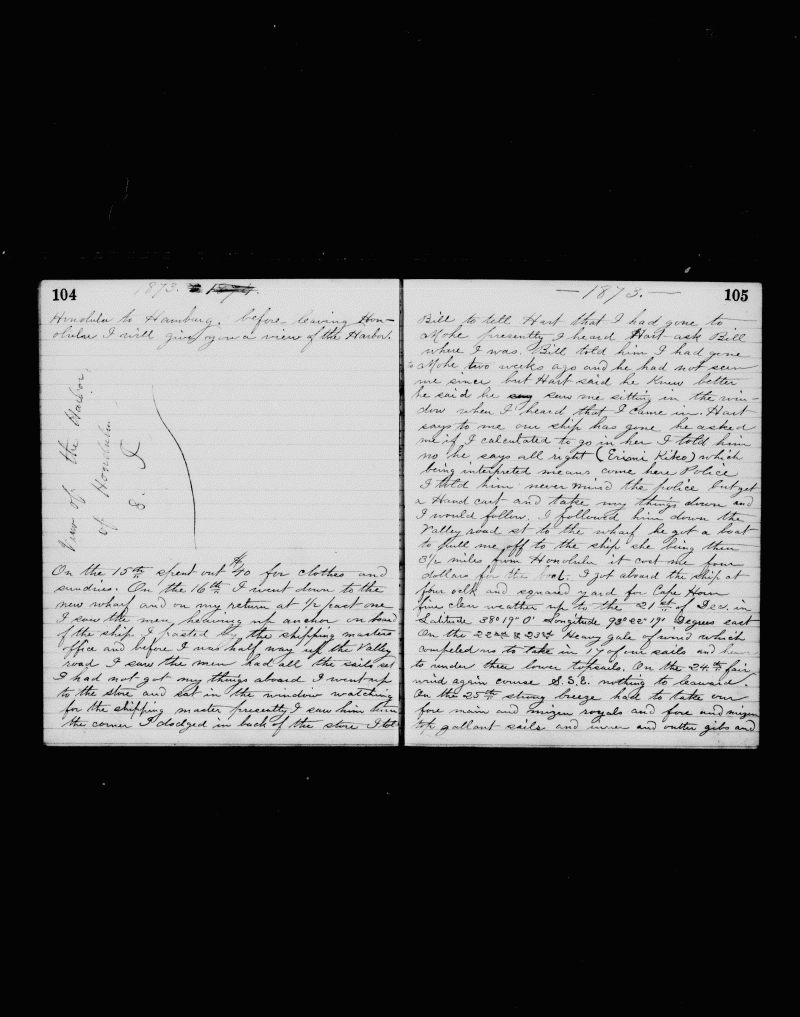 104
1873.
Honolulu to Hamburg. before leaving Hon-
olulu I will give you a view of the Harbor.
View of the Harbor,
of Honolulu
On the 15th spent out $40 for clothes and
sundries. On the 16th I went down to the
new wharf and on my return at 1/2 past one
I saw the men heaving up anchor on board
of the ship I passed by the shipping masters
office and before I was half way up the Valley
road I saw the men had all the sails set
I had not got my things aboard I went up
to the store and sat in the window watching
for the shipping master presently I saw him turn
the corner I dodged in back of the store I told
105
—1873.—
Bill to tell Hart that I had gone to
presently I heard Hart ask Bill
where I was. Bill told him I had gone
to two weeks ago and he had not seen
me since but Hart said he knew better
he said he saw me sitting in the win-
dow when I heard that I came in. Hart
says to me our ship has gone he asked
me if I calculated to go in her I told him
no he says all right (Eromi Kiko) which
being interpreted means come here Police
I told him never mind the police but get
a Hand cart and take my things down and
I would follow. I followed him down the
Valley road st to the wharf he got a boat
to pull me off to the ship she being then
3 1/2 miles from Honolulu it cost me four
dollars for the boat. I got aboard the ship at
four oclk and squared yard for Cape Horn
fine clear weather up to the 21st of Dec. in
Latitude 38° 19' 0" Longitude 98° 22' 19" Degrees east
On the 22nd & 23rd Heavy gale of wind which
compeled us to take in 17 of our sails and
to under three lower topsails. On the 24th fair
wind again course S.S.E. nothing to leaward.
On the 25th strong breeze had to take our
fore main and mizen royals and fore and mizen
top gallant sails and inner and outter gibs and